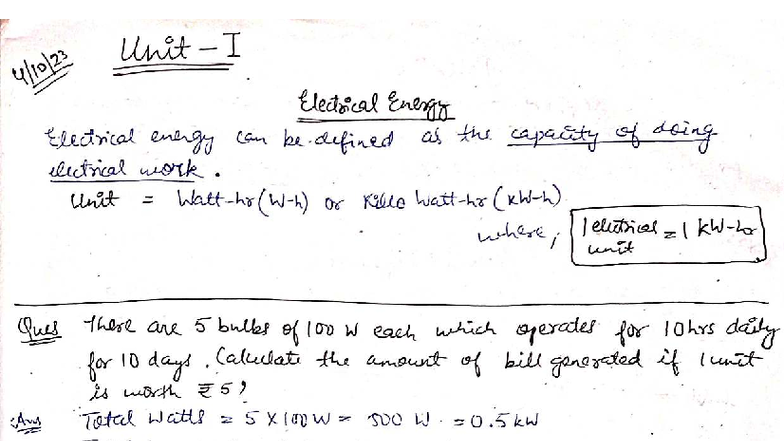 4/10/23
Unit - I
Electrical Energy
Electrical energy can be defined as the capacity of doing
electrical work.
Unit = Watt-hr (W-h) or Killo Watt-hr (kW-h)
where, 1 electrical unit = 1 kW-hr
Ques There are 5 bulbs of 100 W each which operates for 10hrs daily
for 10 days. Calculate the amount of bill generated if 1 unit
is worth ₹5?
Ans Total Watts = 5 X 100 W = 500 W. = 0.5 kW